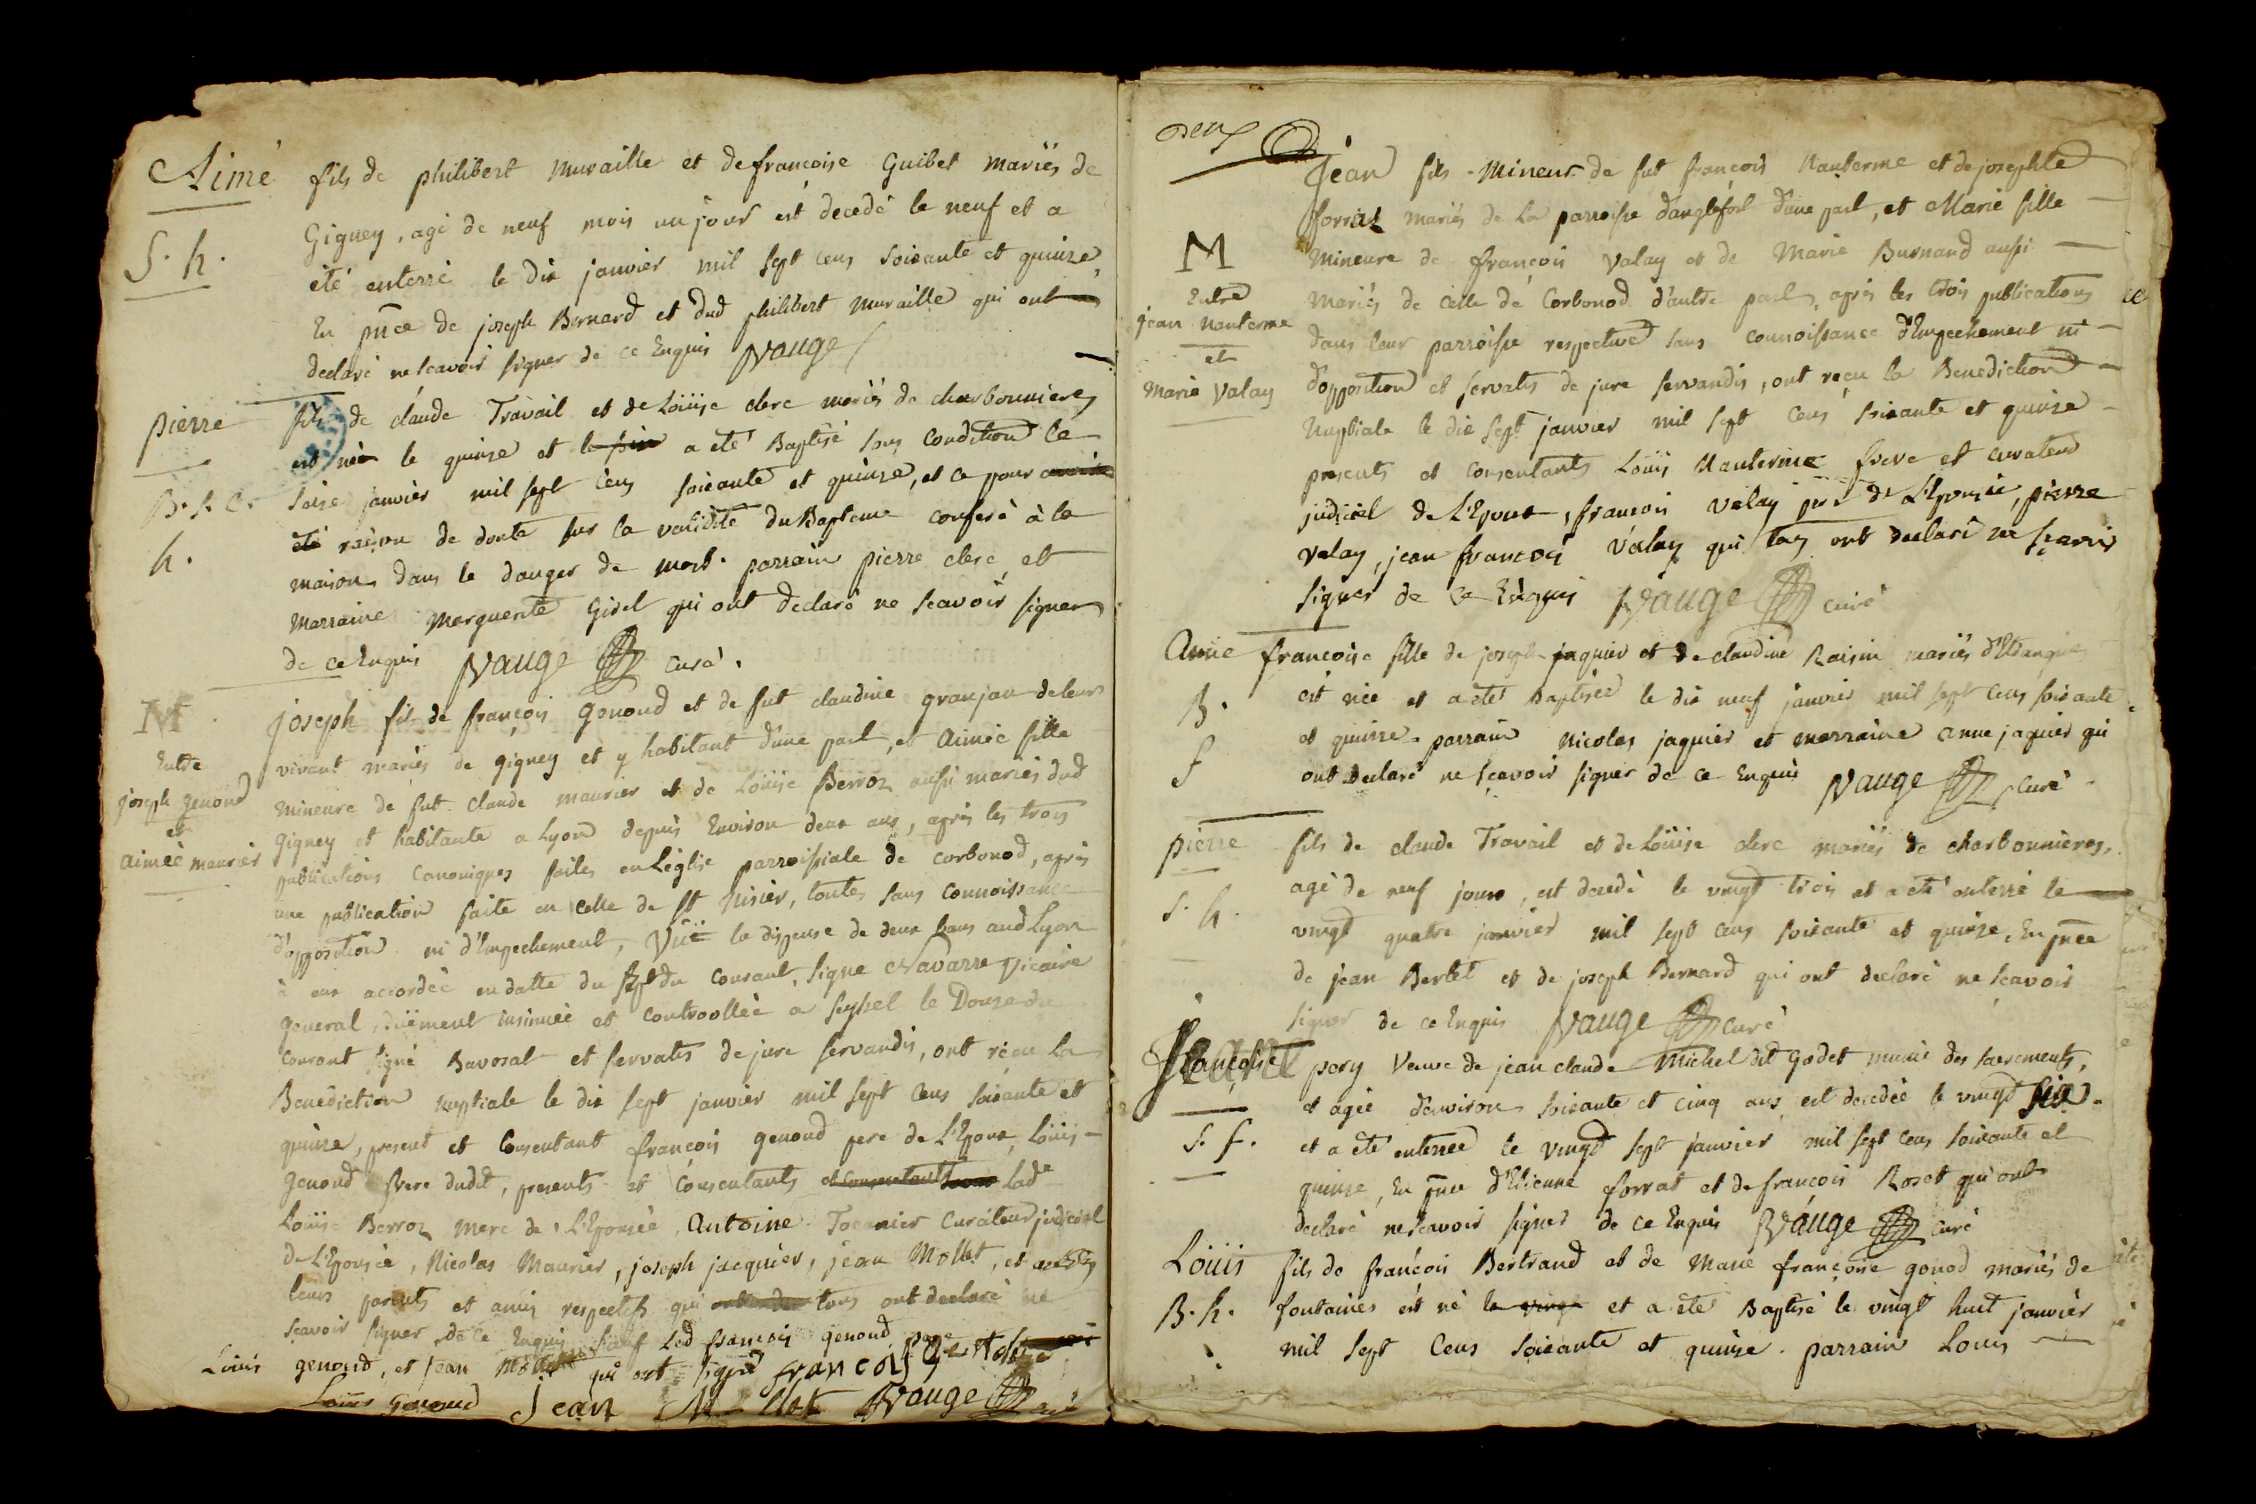 Aimé fils de philibert muraille et de francoise Guibet mariés de
S. h. Gigney, agé de neuf mois un jour est decedé le neuf et a
été enterré le dix janvier mil sept cens soixante et quinze,
En pnce de joseph Bernard et dud philibert muraille qui ont
declaré ne scavoir signer de ce Enquis Nauge
pierre fils de claude Travail et de Loüise clerc mariés de charbonnieres
est né le quinze et a eté Baptisé sous condition le
B. s. c. saize janvier mil sept cens soixante et quinze, et ce pour
h. raison de doute sur la validité du Bapteme conferé à la
maison dans le danger de mort. parrain pierre clerc et
marraine marguerite Gidel qui ont declaré ne scavoir signer
de ce Enquis Nauge curé.
M joseph fils de françois Genoud et de fut claudine granjan de leur
Entre vivant mariés de gigney et y habitant d'une part, et Aimée fille
joseph genoud mineure de fut claude maurier et de Loüise Berroz aussi mariés dud
et gigney et habitante a Lyon depuis Environ deux ans, après les trois
aimée maurier publications canoniques faites en L'eglise parroissiale de corbonod, après
une publication faite en celle de St Nisier, toutes sans connoissance
d'opposition ni d'Empechement, Vüe la dispense de deux bans aud Lyon
à eux accordée en datte du sept du courant, signe Navarre vicaire
general, düement insinuée et controollée a seyssel le Douze du
courant signé Bavosat et servatis de jure servandis, ont reçu la
Benediction nuptiale le dix sept janvier mil sept cens soixante et
quinze, present et Consentant françois genoud pere de L'Epoux, Loüis
Genoud frere dudit, presents et Consentants Lade
Loüise Berroz mere de L'Epousée, Antoine curateur judiciel
de L'Epousée, Nicolas Maurier, joseph jacquier, jean Mollet, et
leurs parents et amis respectifs qui tous ont declaré ne
scavoir signer de ce Enquis sauf led françois genoud
Loüis genoud, et jean qui ont signé francois
Louis Genoud Jean Nauge curé
jean fils mineur de fut françois Nanterme et de josephte
forraz mariés de la parroisse d'anglefort d'une part, et Marie fille
M mineure de françois Valay et de Marie Burnand aussi
Entre mariés de celle de Corbonod d'autre part, après les trois publications
jean nanterme dans leur parroisse respective sans connoissance d'Empechement ni
et
marie Valay d'opposition et servatis de jure servandis, ont reçu la Benediction
Nuptiale le dix sept janvier mil sept cens soixante et quinze
presents et consentants Loüis Nanterme frere et curateur
judiciel de L'Epoux, françois Valay pere de L'Epousée, pierre
valay, jean françois valay qui tous ont declaré ne scavoir
signer de ce Enquis Nauge curé
Anne françoise fille de joseph jaquier et de claudine Raisin mariés
B. est née et a eté baptisée le dix neuf janvier mil sept cens soixante
f et quinze. parrain nicolas jaquier et marraine anne jaquier qui
ont declaré ne scavoir signer de ce Enquis Nauge curé
pierre fils de claude Travail et de Loüise clerc mariés de charbonnieres,
agé de neuf jours, est decedé le vingt trois et a eté enterré le
S. h. vingt quatre janvier mil sept cens soixante et quinze, En pnce
de jean Bertet et de joseph Bernard qui ont declaré ne scavoir
signer de ce Enquis Nauge curé
françoise pery Veuve de jean claude Michel dit godet munie des sacrements,
et agée d'environ soixante et cinq ans est decedée le vingt six
S. f. et a eté enterrée le vingt sept janvier mil sept cens soixante et
quinze, En pnce d'Etienne forrat et de françois Roset qui ont
declaré ne scavoir signer de ce Enquis Nauge curé
Loüis fils de françois Bertrand et de Marie françoise gonod mariés de
B. h. fontaines est né et a eté Baptisé le vingt huit janvier
mil sept cens soixante et quinze. parrain Louis